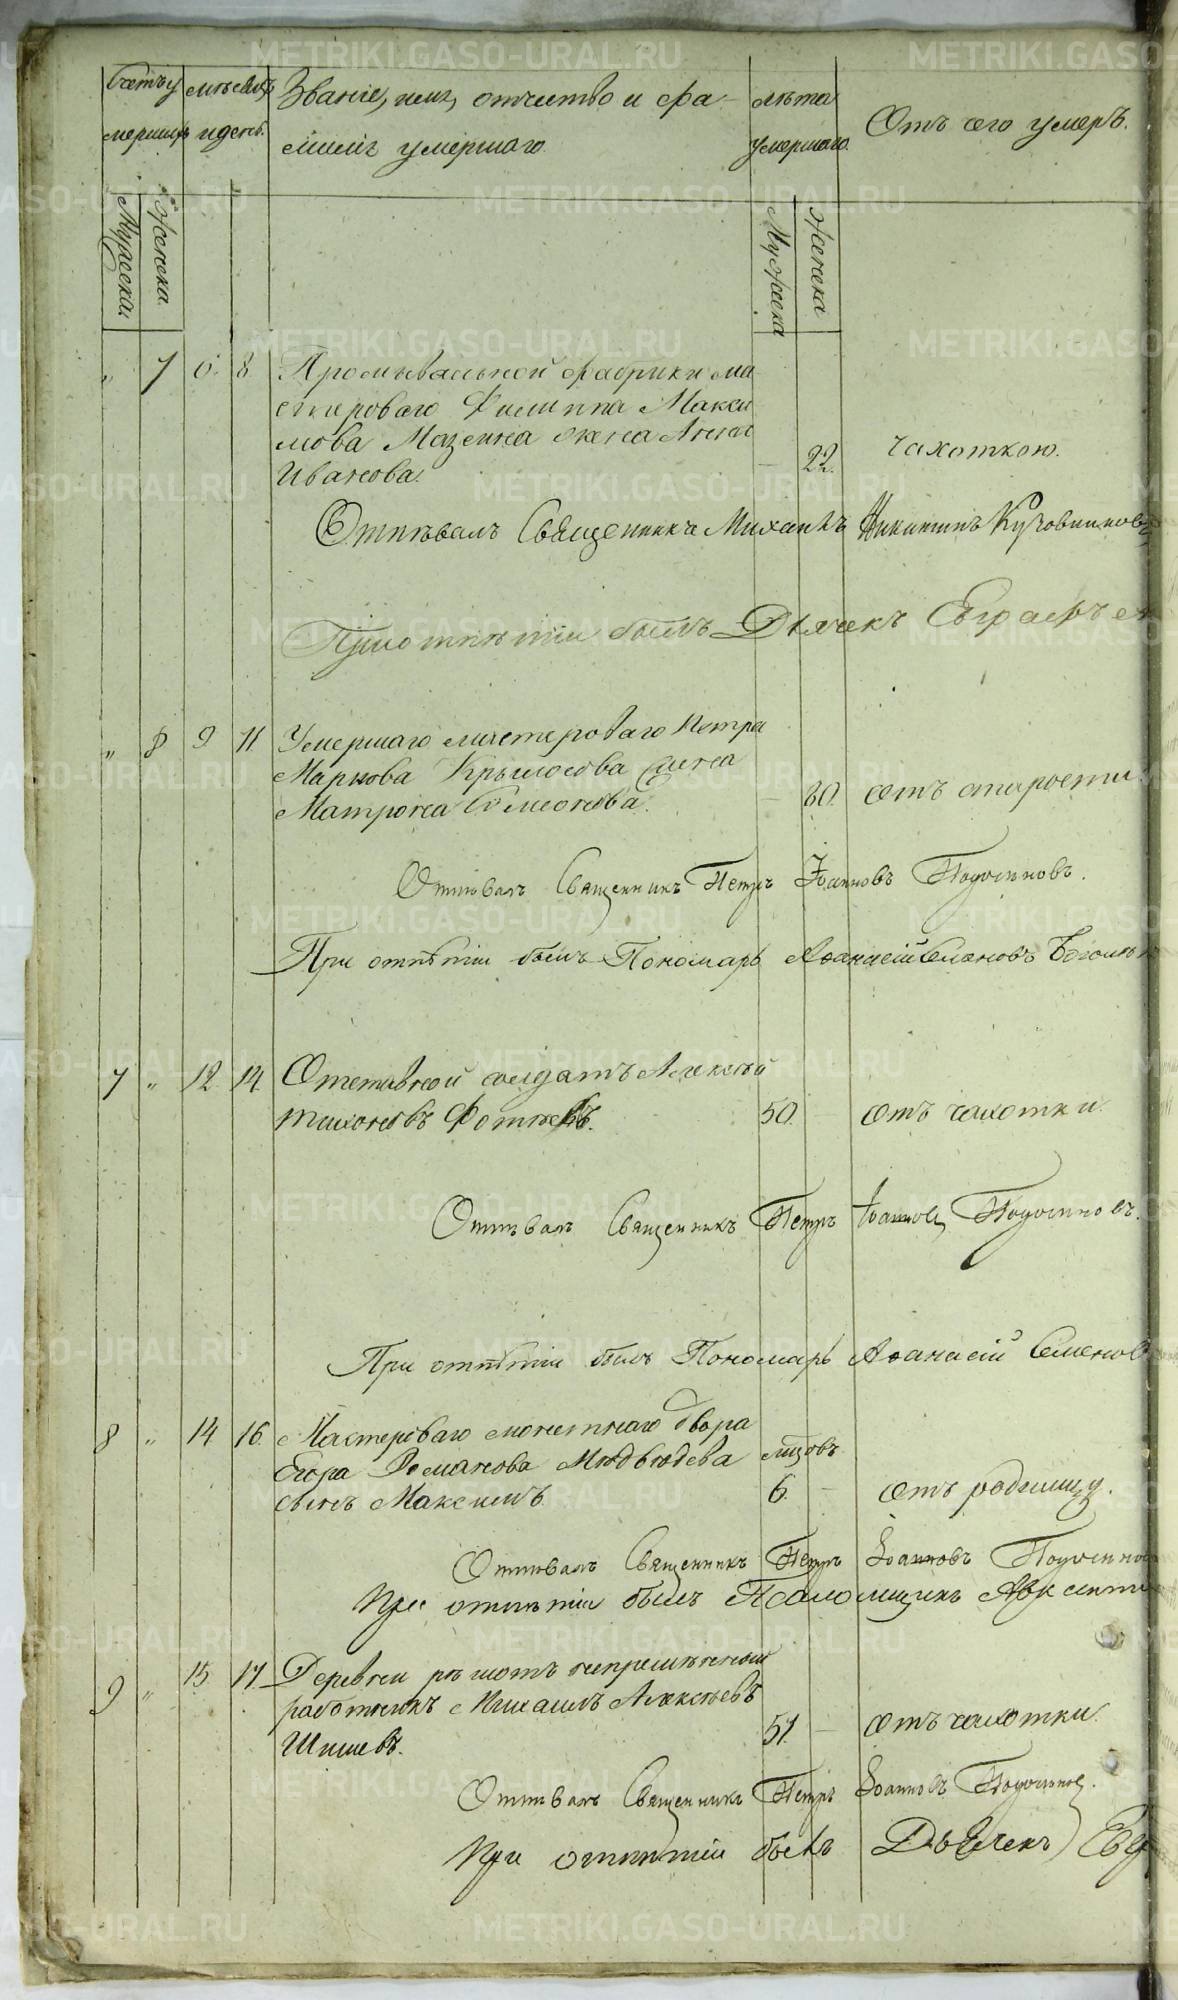 METRIKI.GASO-URAL.RU
Счетъ у
мершихъ
мѣсяцъ
и день.
Званіе, имя, отчество и фа-
милія умершаго.
лѣта
умершаго.
Отъ чего умеръ.
Мужеска.
Женска.
Мужеска
Женска
" 7 6. 8 Промывальной фабрики ма
стероваго Филиппа Макси
мова Мазеина жена Анна
Иванова. — 22. чахоткою.
Отпѣвалъ Священникъ Михаилъ Никитинъ Кузовниковъ
При отпѣтіи былъ Дьячекъ Евграфъ
" 8 9 11 Умершаго мастероваго Петра
Маркова Крылосова жена
Матрона Симеонова. — 80. отъ старости
Отпѣвалъ Священникъ Петръ Іоанновъ
При отпѣтіи былъ Пономарь Афанасій Семеновъ
7 " 12 14 Отставной солдатъ Алексѣй
Тихоновъ 50. отъ чахотки.
Отпѣвалъ Священникъ Петръ Іоанновъ
При отпѣтіи былъ Пономарь Афанасій Семенов
8 " 14 16. Мастероваго монетнаго двора
Егора Романова Медвѣдева мцовъ
сынъ Максимъ 6. — отъ родимцу.
Отпѣвалъ Священникъ Петръ Іоанновъ
При отпѣтіи былъ Псаломщикъ Авксенти
9 " 15 17. Деревни рѣшотъ непремѣнный
работникъ Михаилъ Алексѣевъ
Шишевъ. 51. — отъ чахотки.
Отпѣвалъ Священникъ Петръ Іоанновъ
При отпѣтіи былъ Дьячекъ Евг